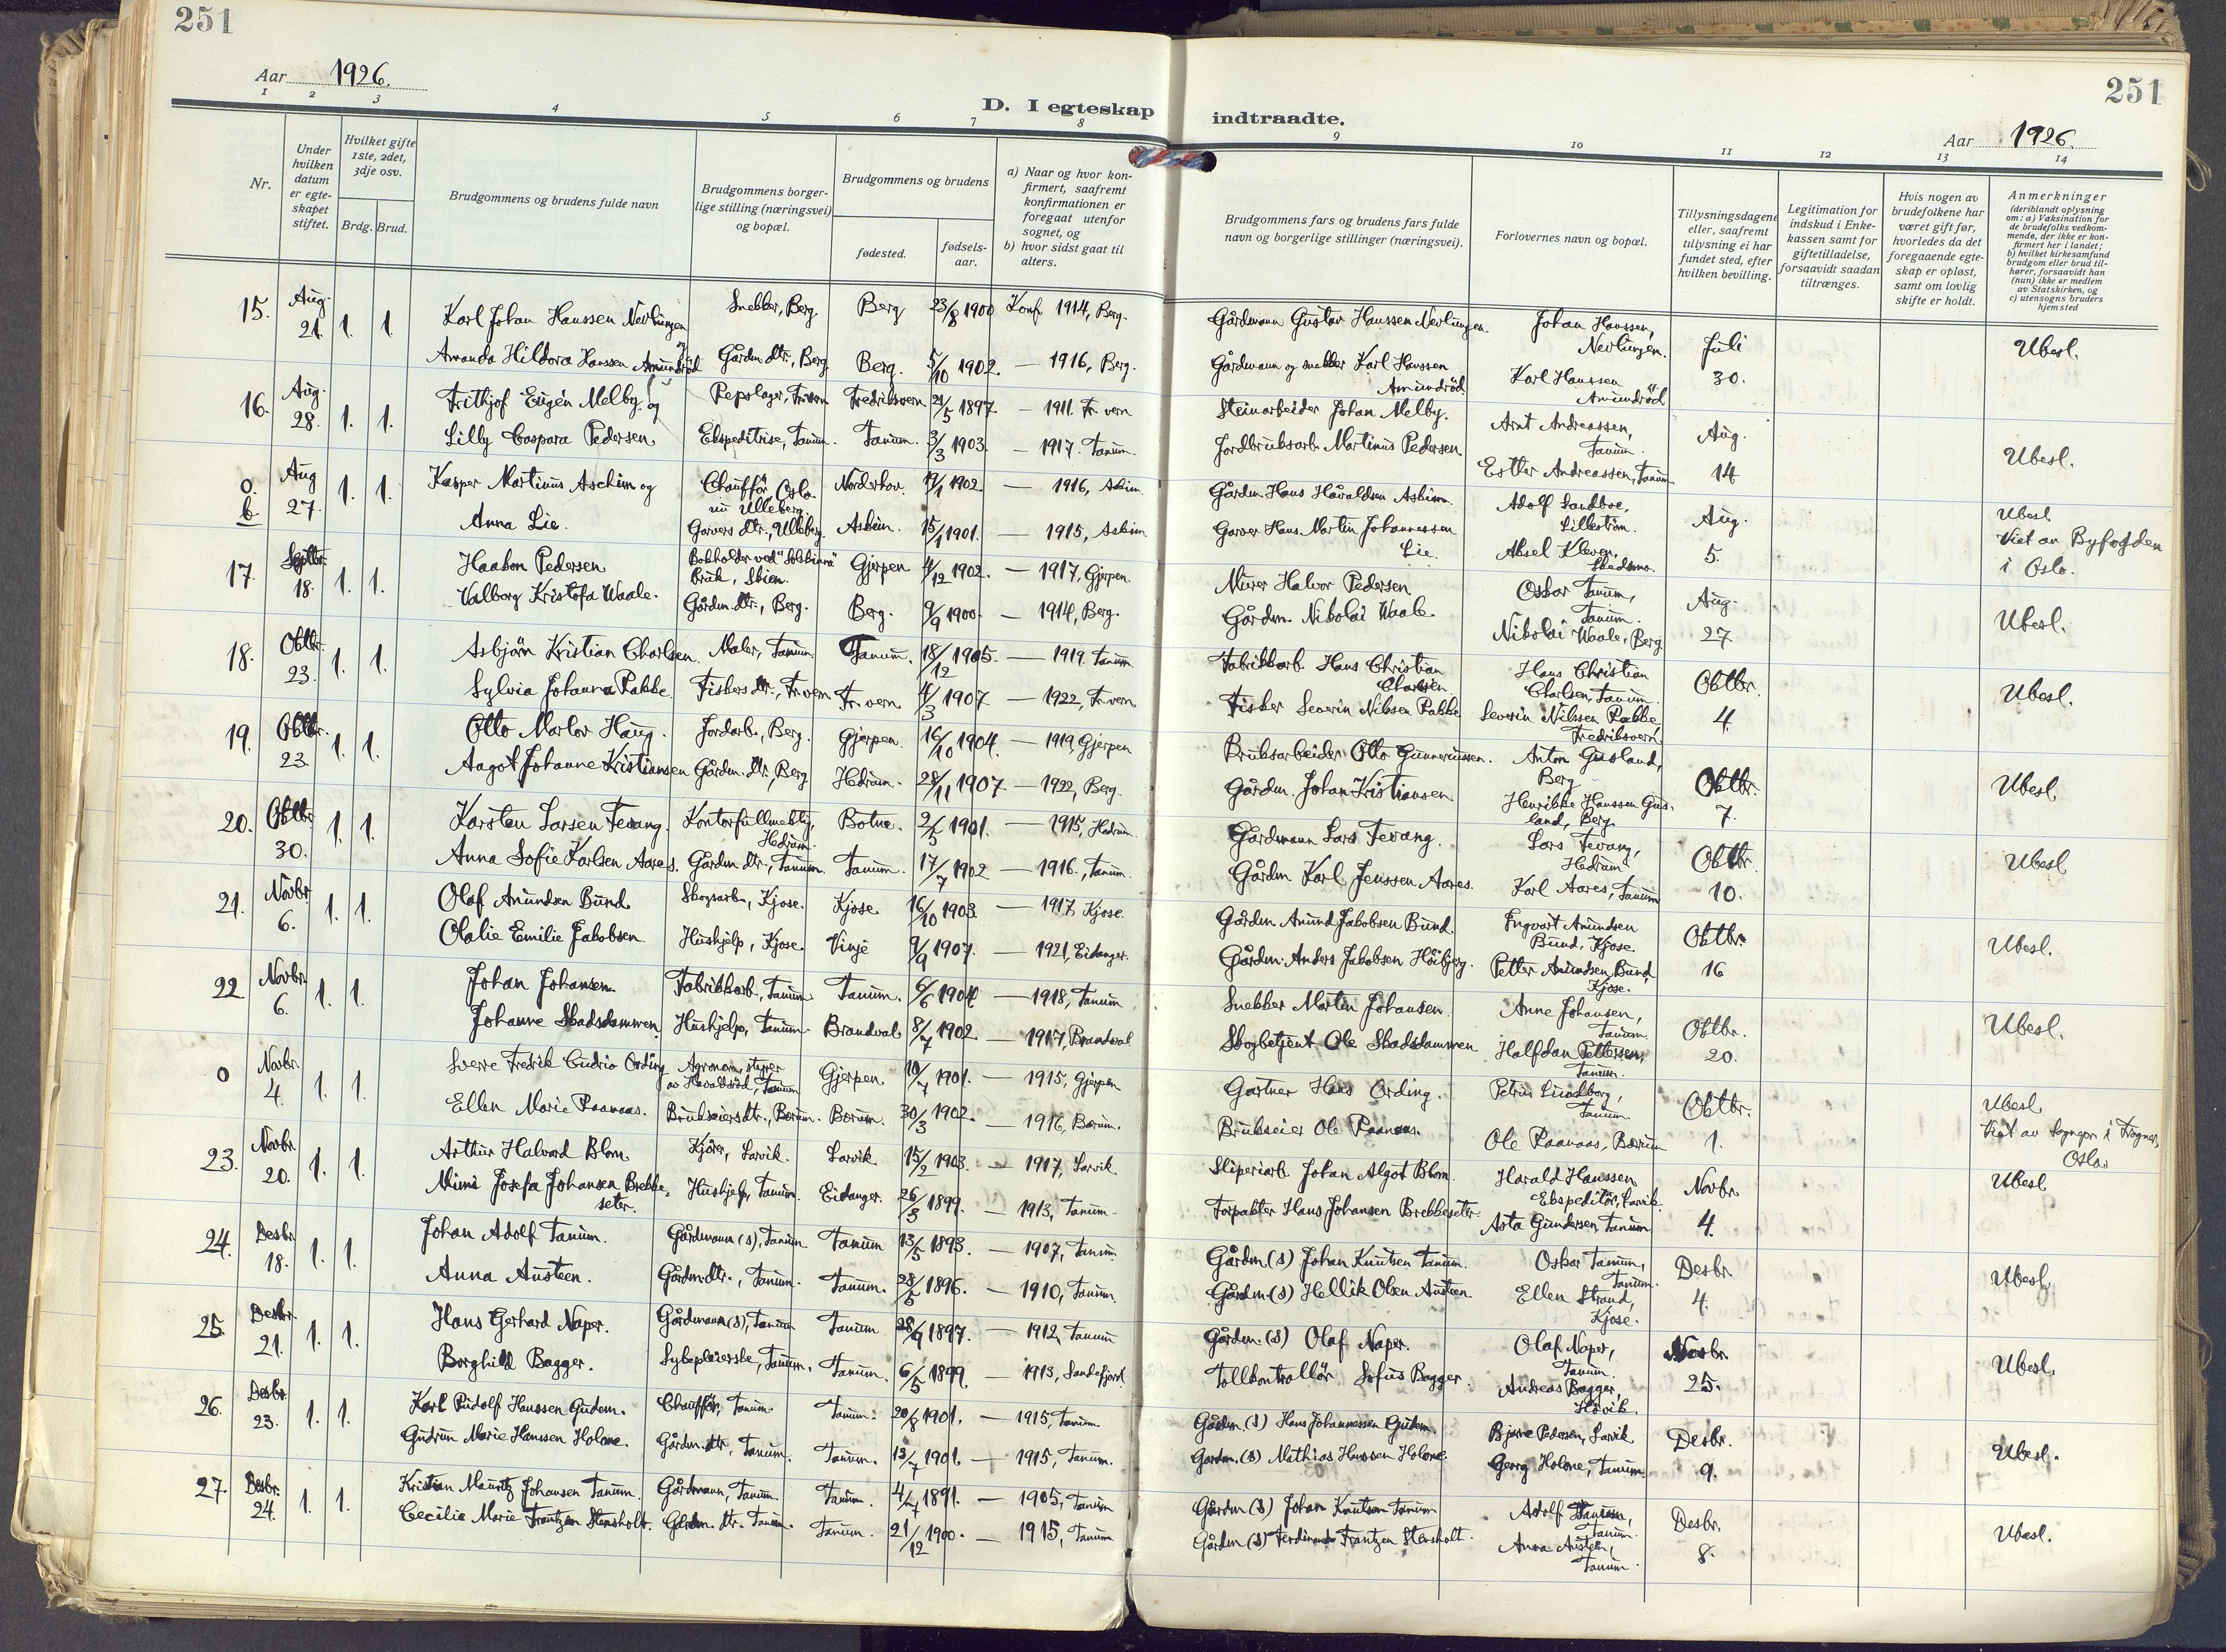 251
251
Aar 1926.
D. I egteskap indtraadte.
Aar 1926.
1 2 3 4 5 6 7 8 9 10 11 12 13 14
Nr.
Under hvilken datum er egteskapet stiftet.
Hvilket gifte 1ste, 2det, 3dje osv.
Brdg. Brud.
Brudgommens og brudens fulde navn
Brudgommens borgerlige stilling (næringsvei) og bopæl.
Brudgommens og brudens
fødested.
fødsels-aar.
a) Naar og hvor konfirmert, saafremt konfirmationen er foregaat utenfor sognet, og
b) hvor sidst gaat til alters.
Brudgommens fars og brudens fars fulde navn og borgerlige stillinger (næringsvei).
Forlovernes navn og bopæl.
Tillysningsdagene eller, saafremt tillysning ei har fundet sted, efter hvilken bevilling.
Legitimation for indskud i Enkekassen samt for giftetilladelse, forsaavidt saadan tiltrænges.
Hvis nogen av brudefolkene har været gift før, hvorledes da det foregaaende egteskap er opløst, samt om lovlig skifte er holdt.
Anmerkninger
(deriblandt oplysning om: a) Vaksination for de brudefolks vedkommende, der ikke er konfirmert her i landet; b) hvilket kirkesamfund brudgom eller brud tilhører, forsaavidt han (hun) ikke er medlem av Statskirken, og c) utensogns bruders hjemsted
15. Aug. 21. 1. 1. Karl Johan Hanssen Nevlungen og Snekker, Berg Berg 23/8 1900 Konf. 1914, Berg. Gårdmann Gustav Hanssen Nevlungen. Johan Hanssen, Nevlungen. Juli 30. Ubesl.
Amanda Hildora Hanssen Amundröd Gårdm. dtr., Berg Berg. 5/10 1902. — 1916, Berg. Gårdmann og snekker Karl Hanssen Amundröd. Karl Hanssen Amundröd
16. Aug. 28. 1. 1. Frithjof Eugén Melby og Repslager, Fr.vern Fredriksvern 21/5 1897 — 1911. Fr.vern Steinarbeider Johan Melby. Arnt Andreassen, Tanum. Aug. 14 Ubesl.
Lilly Caspara Pedersen Ekspeditrise, Tanum. Tanum. 3/3 1903. — 1917. Tanum. Jordbruksarb. Martinus Pedersen. Esther Andreassen, Tanum
0. b. Aug 27. 1. 1. Kasper Martinus Aschim og Chauffør, Oslo nu Ulleberg. Norderhov. 19/1 1902 — 1916, Askim. Gårdm. Hans Håvaldsen Askim. Adolf Sandboe, Lilleström. Aug. 5. Ubesl. Viet av Byfogden i Oslo.
Anna Lie. Garvers dtr., Ulleberg Askim. 15/1 1901. — 1915, Askim Garver Hans Martin Johannessen Lie. Aksel Kleven, Skedsmo.
17. Septbr. 18. 1. 1. Haakon Pedersen Bokholder ved "Solskinns" Bruk, Skien. Gjerpen 4/12 1902. — 1917, Gjerpen. Murer Halvor Pedersen Oskar Tanum, Tanum. Aug. 27 Ubesl.
Valborg Kristofa Waale. Gårdm. dtr., Berg. Berg. 9/9 1900. — 1914, Berg. Gårdm. Nikolai Waale. Nikolai Waale, Berg
18. Oktbr. 23. 1. 1. Asbjörn Kristian Charlsen. Maler, Tanum. Tanum. 18/12 1905. — 1919. Tanum. Fabrikkarb. Hans Christian Charlsen Hans Christian Charlsen, Tanum. Oktbr. 4. Ubesl.
Sylvia Johanna Rakke. Fiskers dtr., Fr.vern Fr.vern 4/3 1907 — 1922, Fr.vern Fisker Severin Nilssen Rakke Severin Nilssen Rakke, Fredriksvern.
19. Oktbr. 23. 1. 1. Otto Marlov Haug. Jordarb., Berg. Gjerpen. 16/10 1904. — 1919, Gjerpen Bruksarbeider Otto Gunneriussen. Anton Gusland, Berg Oktbr. 7. Ubesl.
Aagot Johanne Kristiansen Gårdm. dtr., Berg Hedrum. 28/11 1907 — 1922, Berg. Gårdm. Johan Kristiansen Henrikke Hanssen Gusland, Berg.
20. Oktbr. 30. 1. 1. Karsten Larsen Tevang. Kontorfullmektig, Hedrum. Botne. 2/5 1901. — 1915, Hedrum. Gårdmann Lars Tevang. Lars Tevang, Hedrum Oktbr. 10. Ubesl
Anna Sofie Karlsen Aares. Gårdm. dtr., Tanum. Tanum. 17/7 1902 — 1916., Tanum. Gårdm Karl Jenssen Aares. Karl Aares, Tanum
21. Novbr. 6. 1. 1. Olaf Amundsen Bund. Skogsarb., Kjose. Kjose. 16/10 1903. — 1917, Kjose. Gårdm. Amund Jakobsen Bund. Ingvart Amundsen Bund, Kjose. Oktbr. 16 Ubesl.
Olalie Emilie Jakobsen. Hushjelp, Kjose. Vinje 9/9 1907. — 1921, Eidanger. Gårdm. Anders Jakobsen Höibjerg. Petter Amundsen Bund, Kjose.
22. Novbr. 6. 1. 1. Johan Johansen. Fabrikkarb., Tanum. Tanum. 6/6 1904. — 1918, Tanum Snekker Martin Johansen. Anne Johansen, Tanum. Oktbr. 20. Ubesl.
Johanne Skadsdammen Hushjelp, Tanum. Brandval 8/7 1902 — 1917, Brandval Skogbetjent Ole Skadsdammen Halfdan Pettersen, Tanum.
0 Novbr. 4. 1. 1. Sverre Fredrik Cudrio Ording Agronom, styrer av Havaldsröd, Tanum Gjerpen 10/7 1901. — 1915, Gjerpen Gartner Hans Ording. Petrus Lindborg, Tanum. Oktbr. 1. Ubesl. Viet av Sognepr. i Frogner, Oslo.
Ellen Marie Raanaas. Brukseiers dtr., Bærum. Bærum. 30/3 1902. — 1916, Bærum. Brukseier Ole Raanaas. Ole Raanaas, Bærum
23. Novbr. 20. 1. 1. Arthur Halvard Blom Kjörer, Larvik. Larvik. 15/2 1903. — 1917, Larvik. Sliperiarb. Johan Algot Blom. Harald Hanssen Ekspeditör, Larvik. Novbr. 4. Ubesl
Mimi Josefa Johansen Brekkeseter. Hushjelp, Tanum. Eidanger. 26/3 1899. — 1913, Tanum. Forpakter Hans Johansen Brekkeseter. Asta Gundersen, Tanum
24. Desbr. 18. 1. 1. Johan Adolf Tanum. Gårdmann (s), Tanum Tanum 13/5 1893. — 1907, Tanum. Gårdm. (s) Johan Knutsen Tanum. Oskar Tanum, Tanum. Desbr. 4. Ubesl.
Anna Austeen. Gårdm. dtr., Tanum. Tanum. 28/5 1896. — 1910, Tanum. Gårdm. (s) Hellik Olsen Austeen Ellen Strand, Kjose.
25. Desbr. 21. 1. 1. Hans Gerhard Naper. Gårdmann (s), Tanum Tanum 28/9 1897. — 1912, Tanum Gårdm. (s) Olaf Naper. Olaf Naper, Tanum. Novbr. 25. Ubesl.
Borghild Bagger. Sykepleierske, Tanum. Tanum. 6/5 1899. — 1913, Sandefjord. Tollkontrollör Sofus Bagger. Andreas Bagger,
26. Desbr. 23. 1. 1. Karl Rudolf Hanssen Gudem. Chauffør, Tanum. Tanum. 20/8 1901. — 1915, Tanum. Gårdm. (s) Hans Johannessen Gudem. Bjarne Pedersen, Larvik Desbr. 9. Ubesl.
Gudrun Marie Hanssen Holone. Gårdm. dtr, Tanum. Tanum. 13/7 1901. — 1915, Tanum. Gårdm. (s) Mathias Hanssen Holone Georg Holone, Tanum.
27. Desbr. 24. 1. 1. Kristian Mauritz Johansen Tanum. Gårdmann, Tanum. Tanum. 4/7 1891. — 1905, Tanum Gårdm (s) Johan Knutsen Tanum Adolf Tanum, Tanum. Desbr. 8. Ubesl.
Cecilie Marie Frantzen Stensholt. Gårdm. dtr. Tanum. Tanum. 21/12 1900. — 1915, Tanum Gårdm (s) Ferdinand Frantzen Stensholt. Anna Austeen, Tanum.